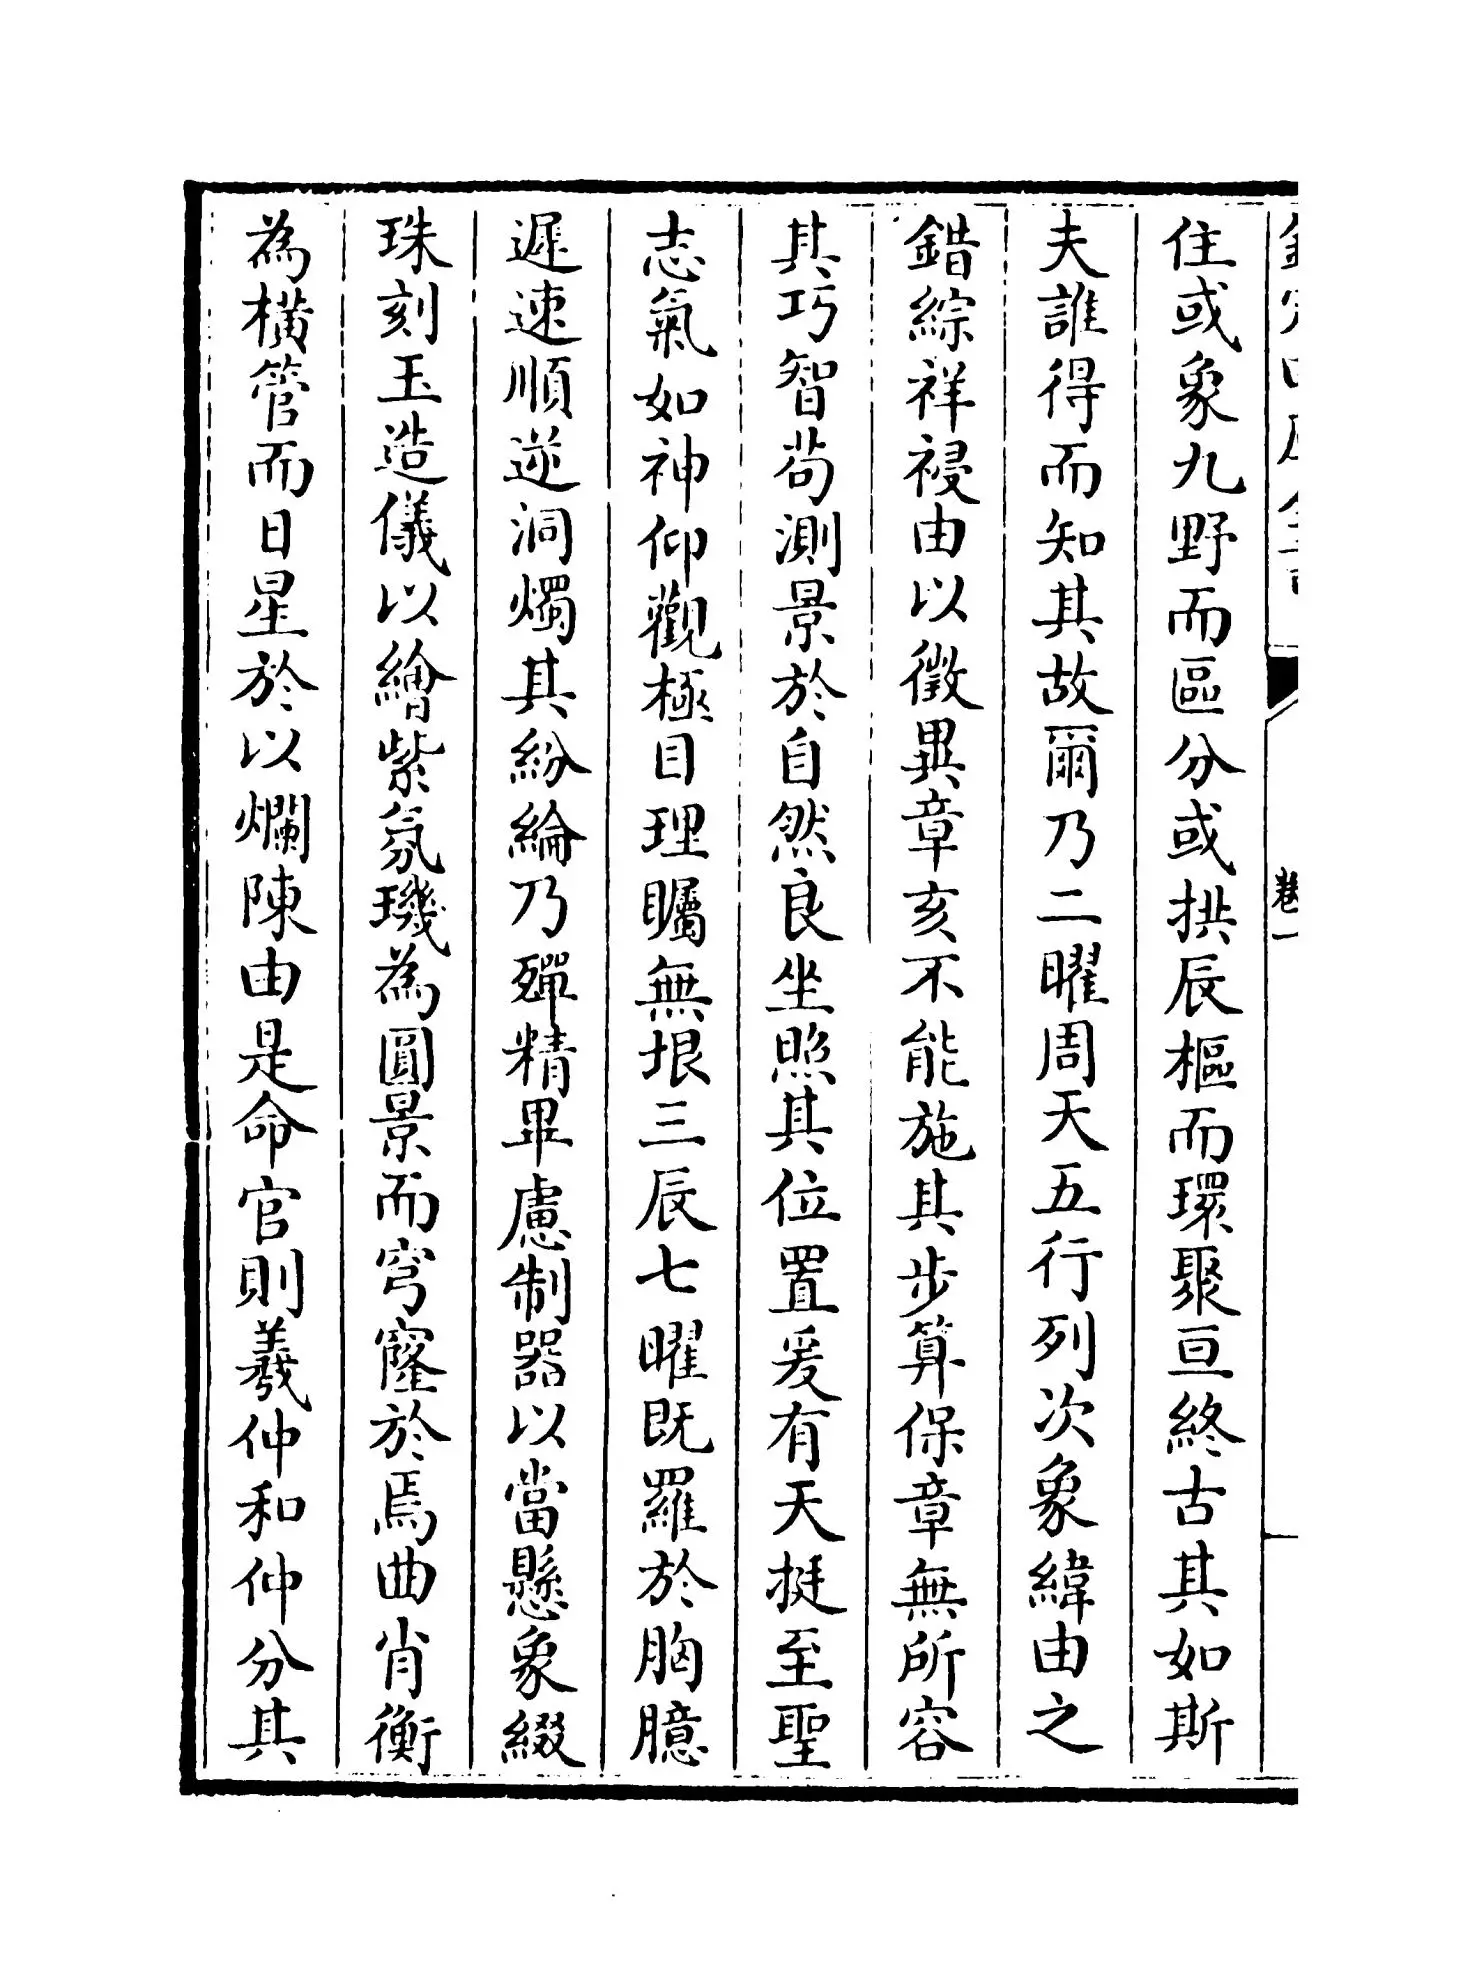 卷一
住或象九野而區分或拱辰樞而環聚亘終古其如斯
夫誰得而知其故爾乃二曜周天五行列次象緯由之
錯綜祥祲由以徵異章亥不能施其步算保章無所容
其巧智茍測景於自然良坐照其位置爰有天挺至聖
志氣如神仰觀極目理矚無垠三辰七曜既羅於胸臆
遲速順逆洞燭其紛綸乃殫精畢慮制器以當懸象綴
珠刻玉造儀以繪紫氛璣為圓景而穹窿於焉曲肖衡
為橫管而日星於以爛陳由是命官則羲仲和仲分其